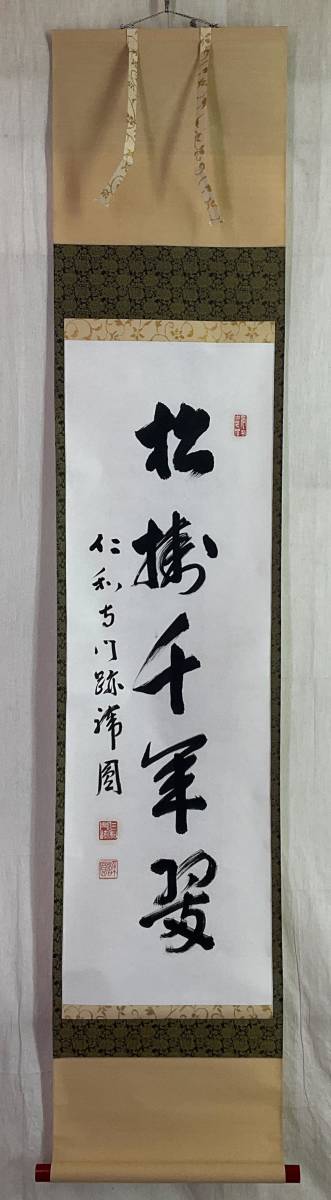 松樹千年翠
仁和寺門跡諦圓